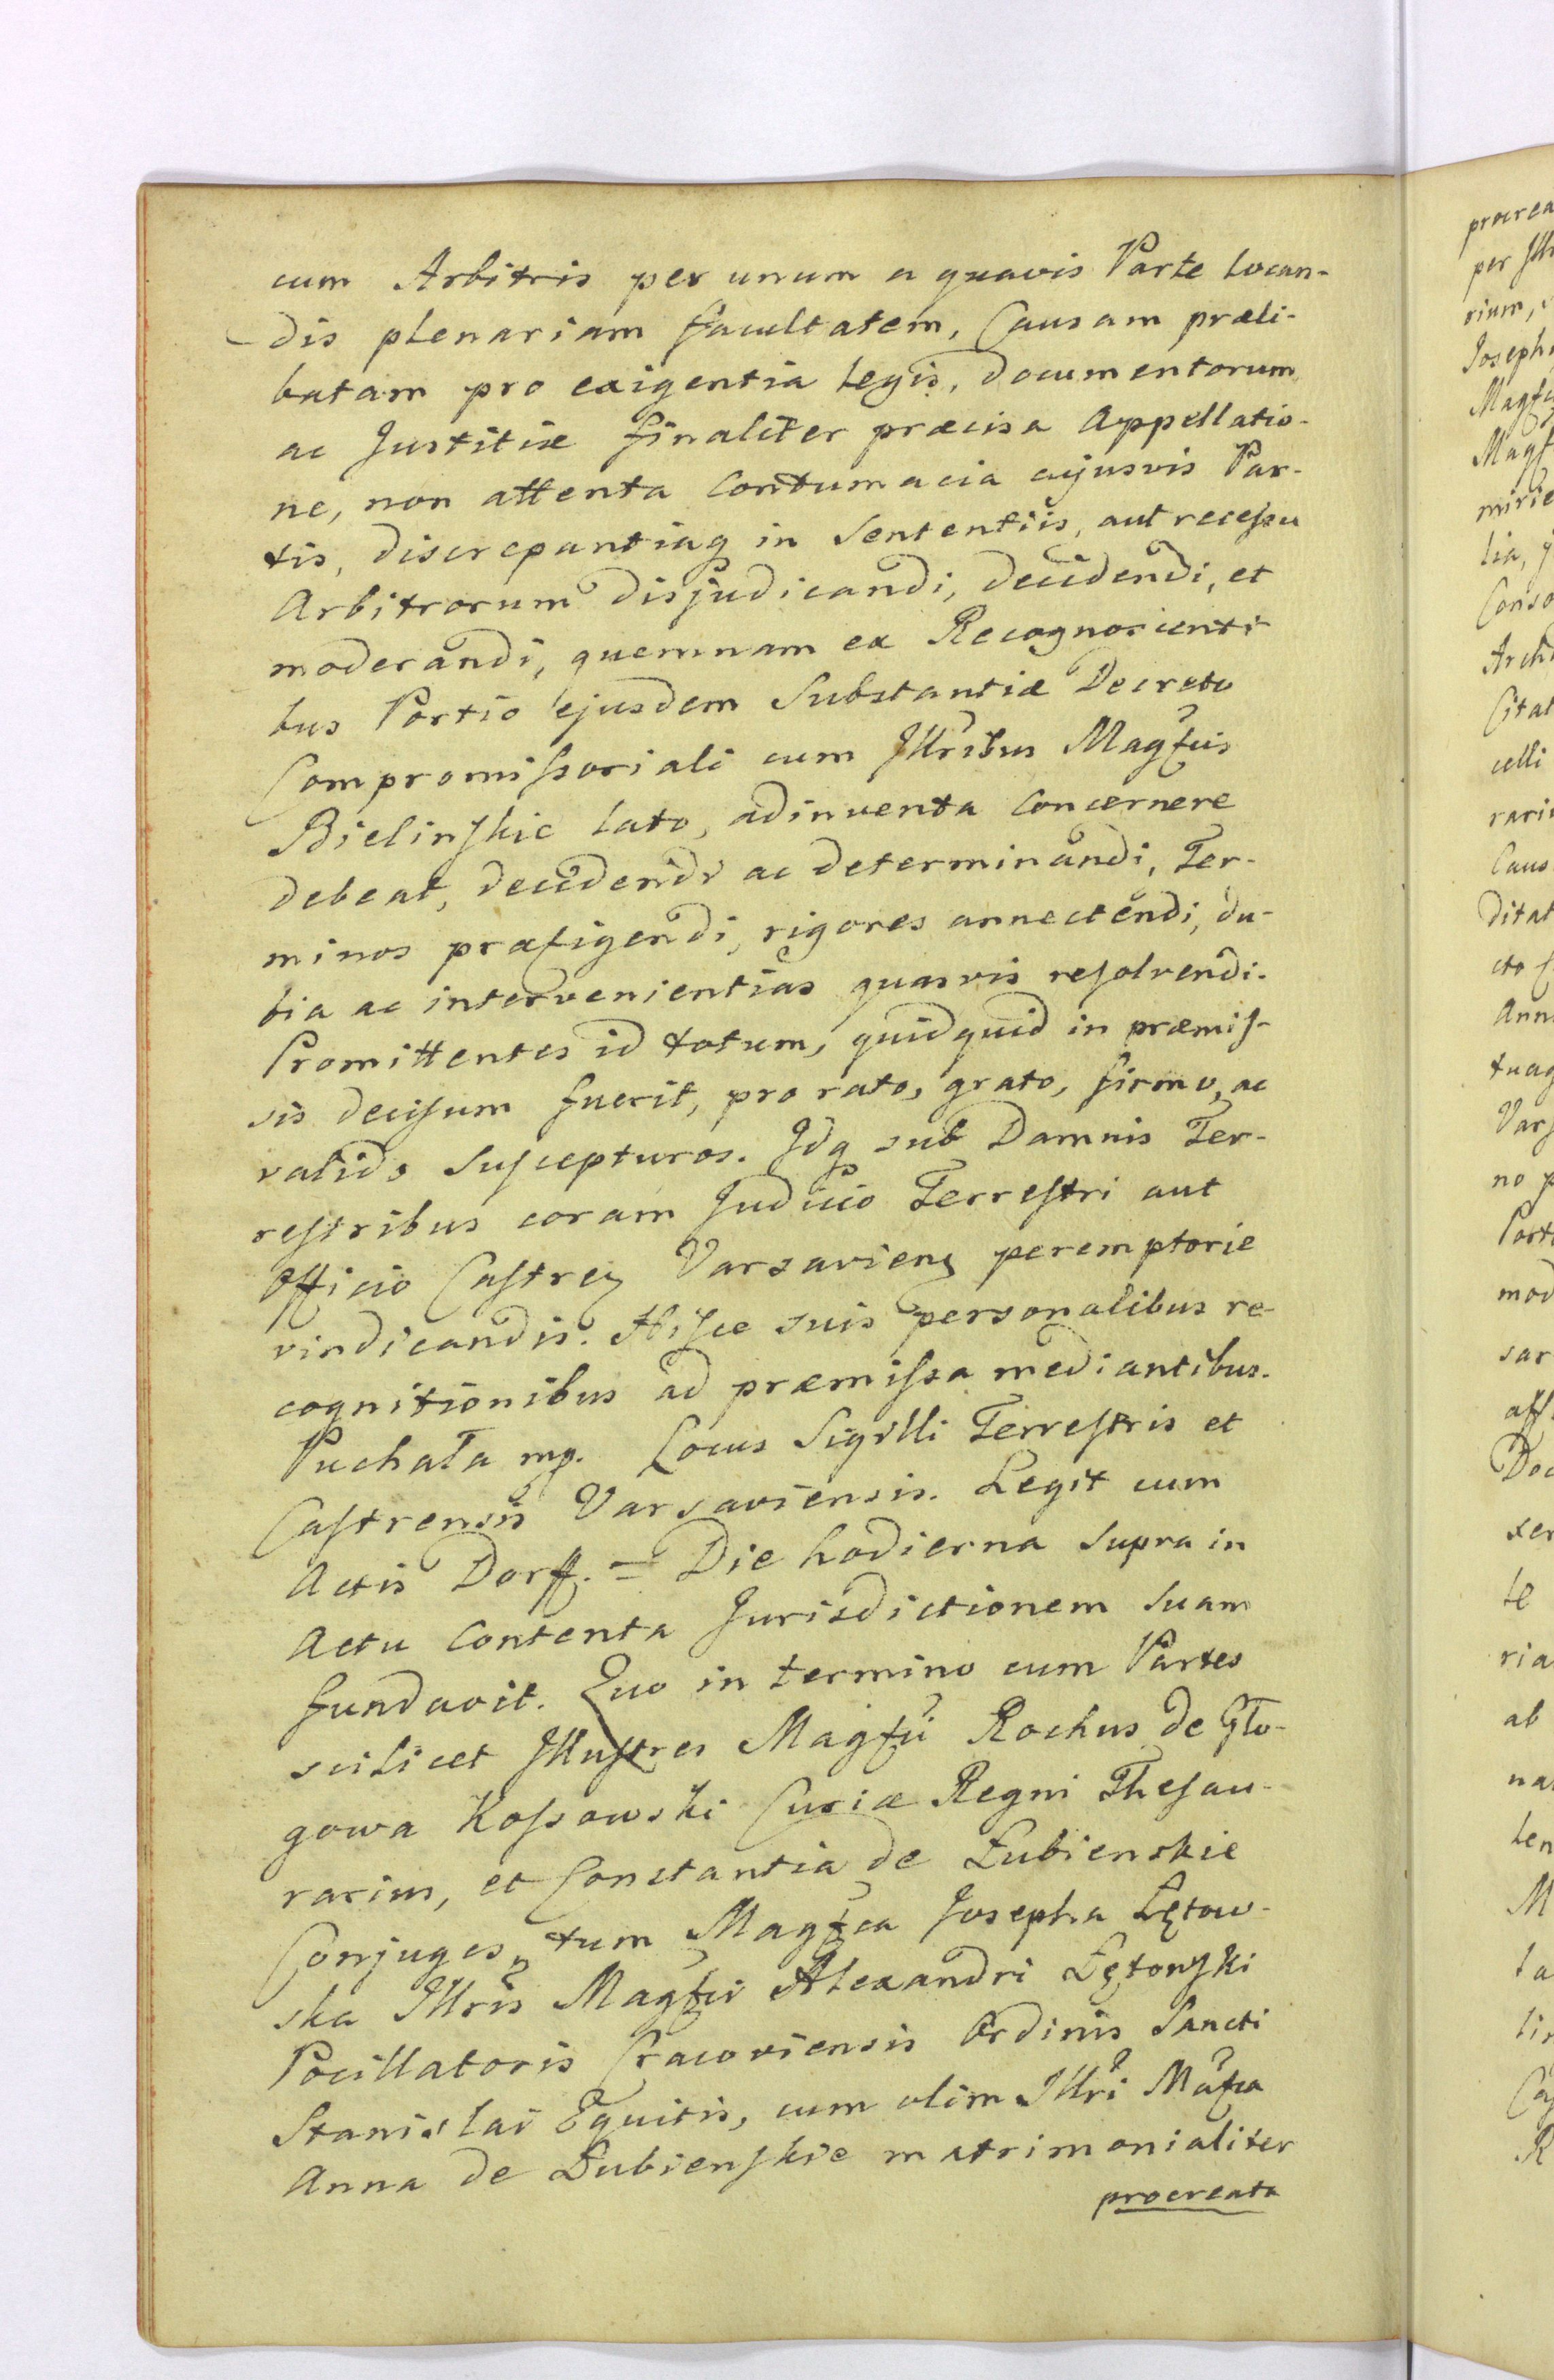 cum Arbitris per unum a quavis Parte locan-
dis plenariam facultatem, Causam præli-
batam pro exigentia legis, documentorum
ac Justitiæ finaliter præcisa Appellatio-
ne, non attenta contumacia cujusvis Par-
tis, discrepantiaq in Sententiis, aut recessu
Arbitrorum disjudicandi, decidendi, et
moderandi, quemnam ex Recognoscenti-
bus Portio ejusdem Substantiæ Decreto
Compromissoriali cum Illribus Magfcis
Bielinskie lato, adinventa concernere
debeat, decidendi ac determinandi, Ter-
minos præfigendi, rigores annectendi, du-
bia ac intervenientias quasvis resolvendi.
Promittentes id totum, quidquid in præmis-
sis decisum fuerit, pro rato, grato, firmo, ac
valido suscepturos. Idq sub Damnis Ter-
restribus coram Judicio Terrestri aut
Officio Castren Varsavien peremptorie
vindicandis. Hisce suis personalibus re-
cognitionibus ad præmissa mediantibus.
Puchała mp. Locus Sigilli Terrestris et
Castrensis Varsaviensis. Legit cum
Actis Dorff. = Die hodierna supra in
Actu contenta Jurisdictionem suam
fundavit. Quo in termino cum Partes
scilicet Illustres Magfci Rochus de Gło-
gowa Kossowski Curiæ Regni Thesau-
rarius, et Constantia de Łubienskie
Conjuges, tum Magfca Josepha Łętow-
ska Illris Magfci Alexandri Łętowski
Pocillatoris Cracoviensis Ordinis Sancti
Stanislai Equitis, cum olim Illri Mafca
Anna de Łubienskie matrimonialiter
procreata
procrea
per Ill
rium,
Joseph
Magfc
Magf
mirie
lia,
Conso
Arch
Citat
celli
rari
Caus
ditat
cto
Ann
tuaq
Vars
no p
Porti
mod
sar
aff
Doc
ser
te
ria
ab
na
ten
M
ta
lir
Ca
R